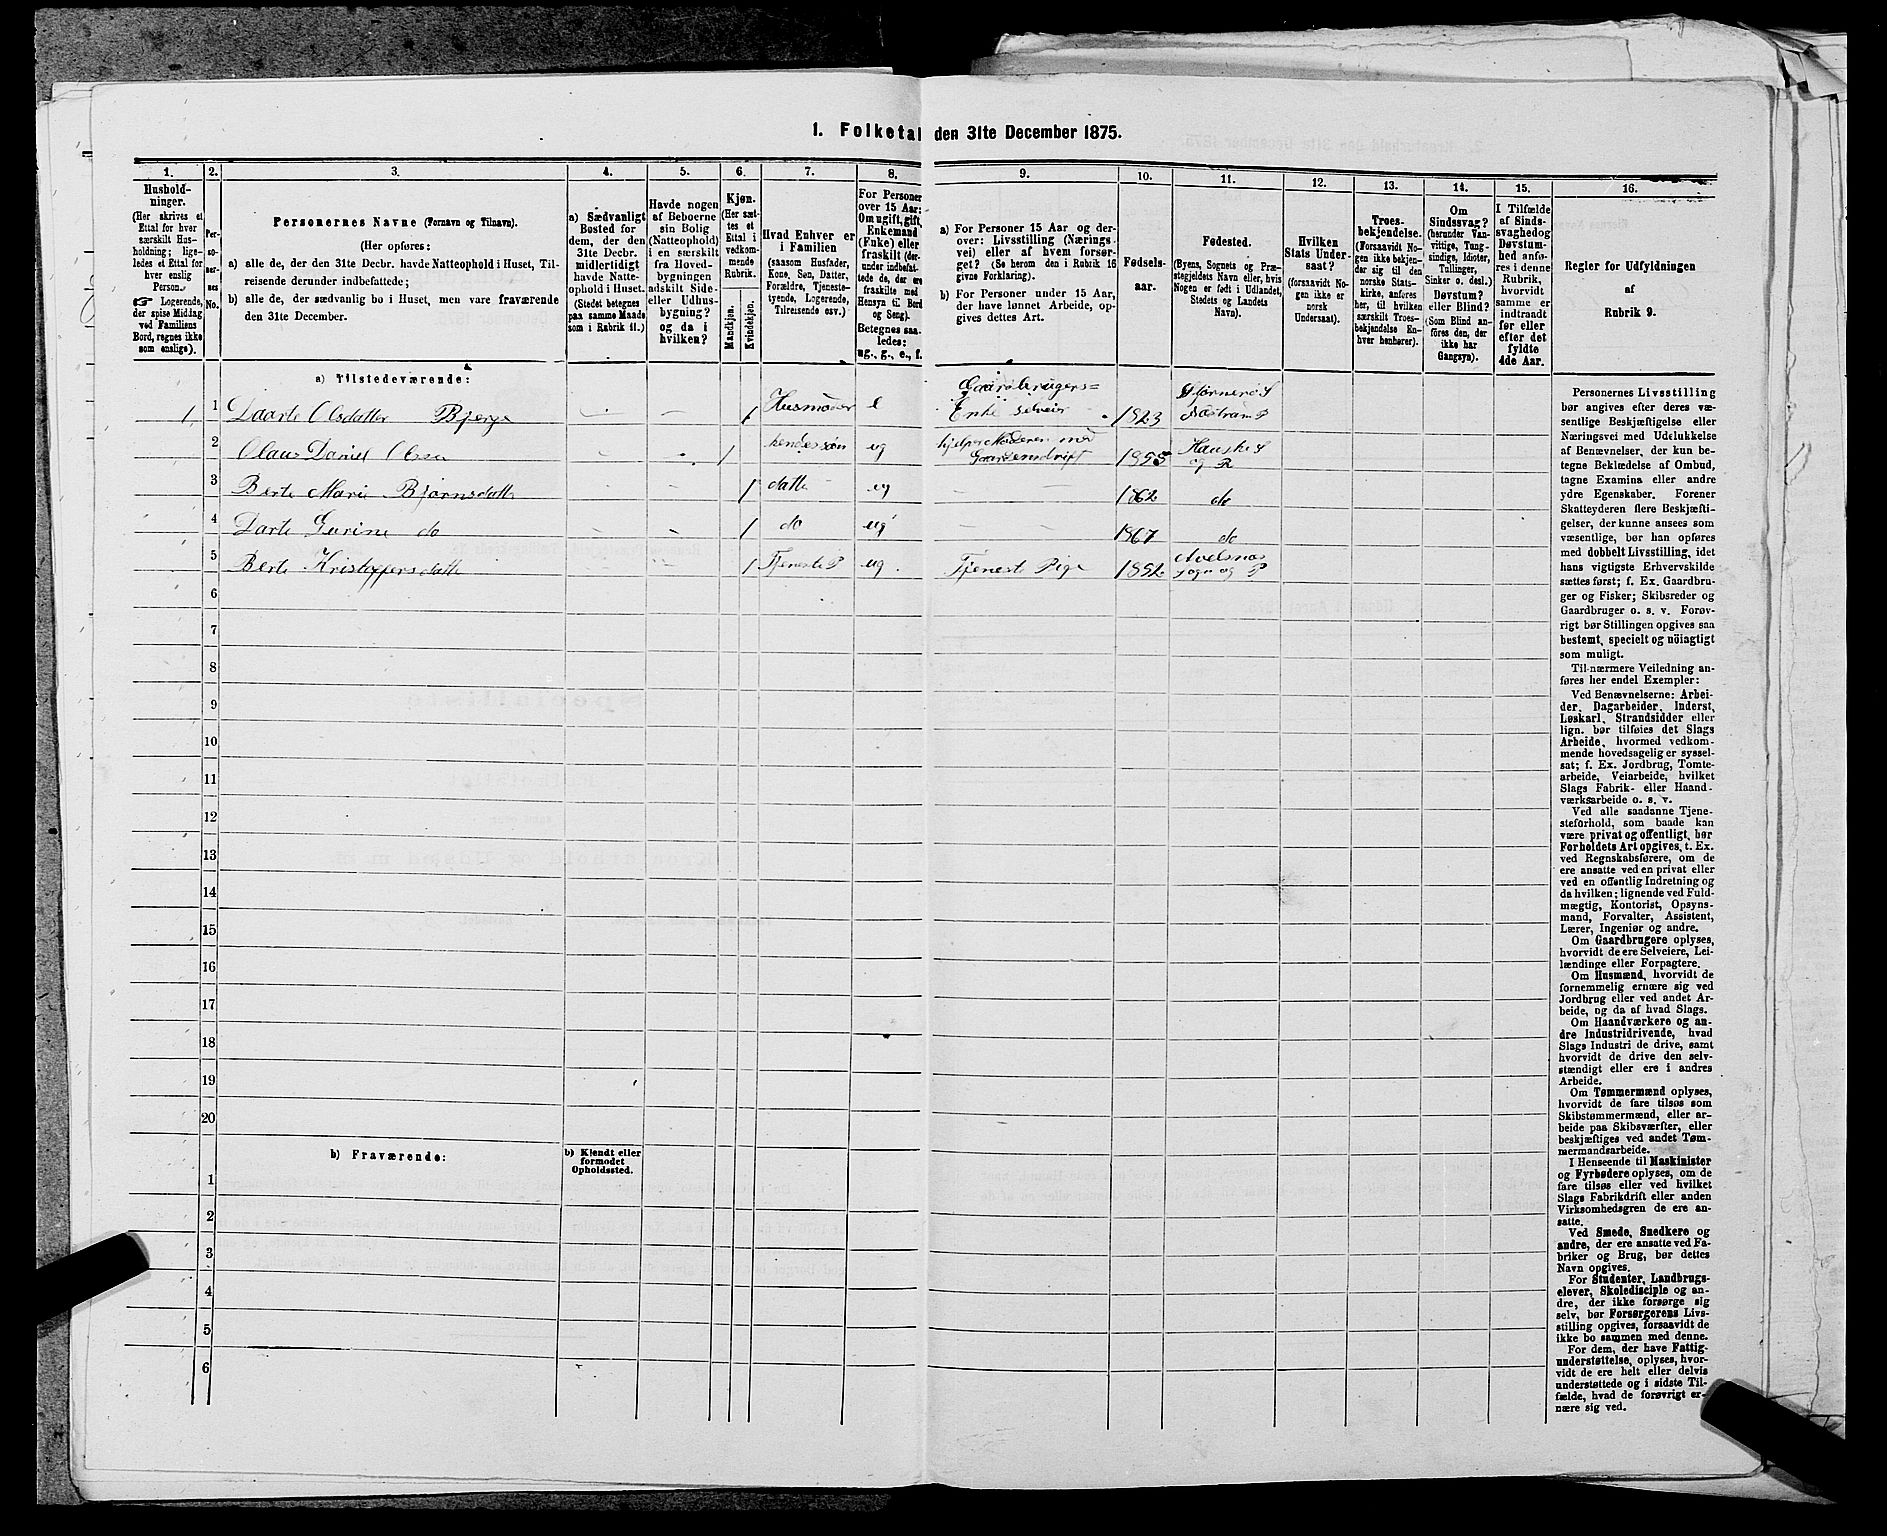 1. Folketal den 31te December 1875.
1.
2.
3.
4.
5.
6.
7.
8.
9.
10.
11.
12.
13.
14.
15.
16.
Hushold-
ninger.
(Her skrives et
Ettal for hver
særskilt Hus-
holdning; lige-
ledes et Ettal for
hver enslig
Person.
☞ Logerende,
der spise Middag
ved Familiens
Bord, regnes ikke
som enslige).
Per-
so-
ner-
nes
No.
Personernes Navne (Fornavn og Tilnavn).
(Her opføres:
a) alle de, der den 31te Decbr. havde Natteophold i Huset, Til-
reisende derunder indbefattede;
b) alle de, der sædvanlig bo i Huset, men vare fraværende
den 31te December.
a) Sædvanligt
Bosted for
dem, der den
31te Decbr.
midlertidigt
havde Natte-
ophold i Huset.
(Stedet betegnes
paa samme Maade
som i Rubrik 11.)
Havde nogen
af Beboerne
sin Bolig
(Natteophold)
i en særskilt
fra Hoved-
bygningen
adskilt Side-
eller Udhus-
bygning?
og da i
hvilken?
Kjøn.
(Her sæt-
tes et
Ettal i
vedkom-
mende
Rubrik.
Mandkjøn.
Kvindekjøn.
Hvad Enhver er
i Familien
(saasom Husfader,
Kone, Søn, Datter,
Forældre, Tjeneste-
tyende, Logerende,
Tilreisende osv.)
For Personer
over 15 Aar:
Om ugift, gift,
Enkemand
(Enke) eller
fraskilt (der-
under indbefat-
tede de, der ere
fraskilte med
Hensyn til Bord
og Seng).
Betegnes saa-
ledes:
ug., g., e., f.
a) For Personer 15 Aar og der-
over: Livsstilling (Nærings-
vei) eller af hvem forsør-
get? (Se herom den i Rubrik 16
givne Forklaring).
b) For Personer under 15 Aar,
der have lønnet Arbeide, op-
gives dettes Art.
Fødsels-
aar.
Fødested.
(Byens, Sognets og Præ-
stegjeldets Navn eller, hvis
Nogen er født i Udlandet,
Stedets og Landets
Navn).
Hvilken
Stats Under-
saat?
(forsaavidt No-
gen ikke er
norsk
Undersaat).
Troes-
bekjendelse.
(Forsaavidt No-
gen ikke bekjen-
der sig til den
norske Stats-
kirke, anføres
her, til hvilken
særskilt Troes-
bekjendelse En-
hver henhører).
Om
Sindssvag?
(herunder Van-
vittige, Tung-
sindige, Idioter,
Tullinger,
Sinker o. desl.)
Døvstum?
eller Blind?
(Som Blind an-
føres den, der
ikke har
Gangsyn).
I Tilfælde
af Sinds-
svaghed og
Døvstum-
hed anfø-
res i denne
Rubrik,
hvorvidt
samme er
indtraadt
før eller
efter det
fyldte
4de Aar.
Regler for Udfyldningen
af
Rubrik 9.
a) Tilstedeværende:
1 1 Daarte Olsdatter Bjerge 1 Husmoder e Gaardbrugers=
Enke Selveier 1823 Stjernerø S
Nastrand P
2 Olaus Daniel Olsen 1 hendes søn ug hjelper Moderen med
Gaardensdrift 1855 Hauske S
og P
3 Berte Marie Bjørnsdatte 1 datte ug 1862 do
4 Darte Gurine do 1 do ug 1867 do
5 Berte Kristoffersdatte 1 Tjeneste P ug Tjeneste Pige 1852 Avelsnæs
sogn og P
6
7
8
9
10
11
12
13
14
15
16
17
18
19
20
b) Fraværende:
b) Kjendt eller
formodet
Opholdssted.
1
2
3
4
5
6
Personernes Livsstilling
bør angives efter deres væ-
sentlige Beskjæftigelse eller
Næringsvei med Udelukkelse
af Benævnelser, der kun be-
tegne Beklædelse af Ombud,
tagne Examina eller andre
ydre Egenskaber. Forener
Skatteyderen flere Beskjæfti-
gelser, der kunne ansees som
væsentlige, bør han opføres
med dobbelt Livsstilling, idet
hans vigtigste Erhvervskilde
sættes først; f. Ex. Gaardbru-
ger og Fisker; Skibsreder og
Gaardbruger o. s. v. Forøv-
rigt bør Stillingen opgives saa
bestemt, specielt og nöiagtigt
som muligt.
Til nærmere Veiledning an-
føres her endel Exempler:
Ved Benævnelserne: Arbei-
der, Dagarbeider, Inderst,
Løskarl, Strandsidder eller
lign. bør tilføies det Slags
Arbeide, hvormed vedkom-
mende hovedsagelig er syssel-
sat; f. Ex. Jordbrug, Tomte-
arbeide, Veiarbeide, hvilket
Slags Fabrik- eller Haand-
værksarbeide o. s. v.
Ved alle saadanne Tjene-
steforhold, som baade kan
være privat og offentligt, bør
Forholdets Art opgives, t. Ex.
ved Regnskabsførere, om de
ere ansatte ved en privat eller
ved en offentlig Indretning og
da hvilken; lignende ved Fuld-
mægtig, Kontorist, Opsyns-
mand, Forvalter, Assistent,
Lærer, Ingeniør og andre.
Om Gaardbrugere oplyses,
hvorvidt de ere Selveiere, Lei-
lændinge eller Forpagtere.
Om Husmænd, hvorvidt de
fornemmelig ernære sig ved
Jordbrug eller ved andet Ar-
beide, og da af hvad Slags.
Om Haandværkere og an-
dre Industridrivende, hvad
Slags Industri de drive, samt
hvorvidt de drive den selv-
stændigt eller ere i andres
Arbeide.
Om Tømmermænd oplyses,
hvorvidt de fare tilsøs som
Skibstømmermænd, eller ar-
beide paa Skibsværfter, eller
beskjæftiges ved andet Tøm-
mermandsarbeide.
I Henseende til Maskinister
og Fyrbødere oplyses, om de
fare tilsøs eller ved hvilket
Slags Fabrikdrift eller anden
Virksomhedsgren de ere an-
satte.
Ved Smede, Snedkere og
andre, der ere ansatte ved Fa-
briker og Brug, bør dettes
Navn opgives.
For Studenter, Landbrugs-
elever, Skoledisciple og an-
dre, der ikke forsørge sig
selv, bør Forsørgerens Livs-
stilling opgives, forsaavidt de
ikke bo sammen med denne.
For dem, der have Fattig-
understøttelse, oplyses, hvor-
vidt de ere helt eller delvis
understøttede og i sidste Til-
fælde, hvad de forøvrigt er-
nære sig ved.